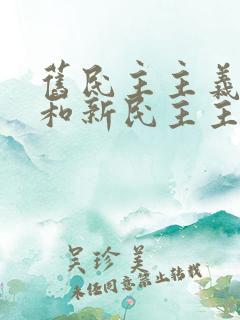 舊民主主義
和新民主主
吳珍美
未任同意禁止轉載